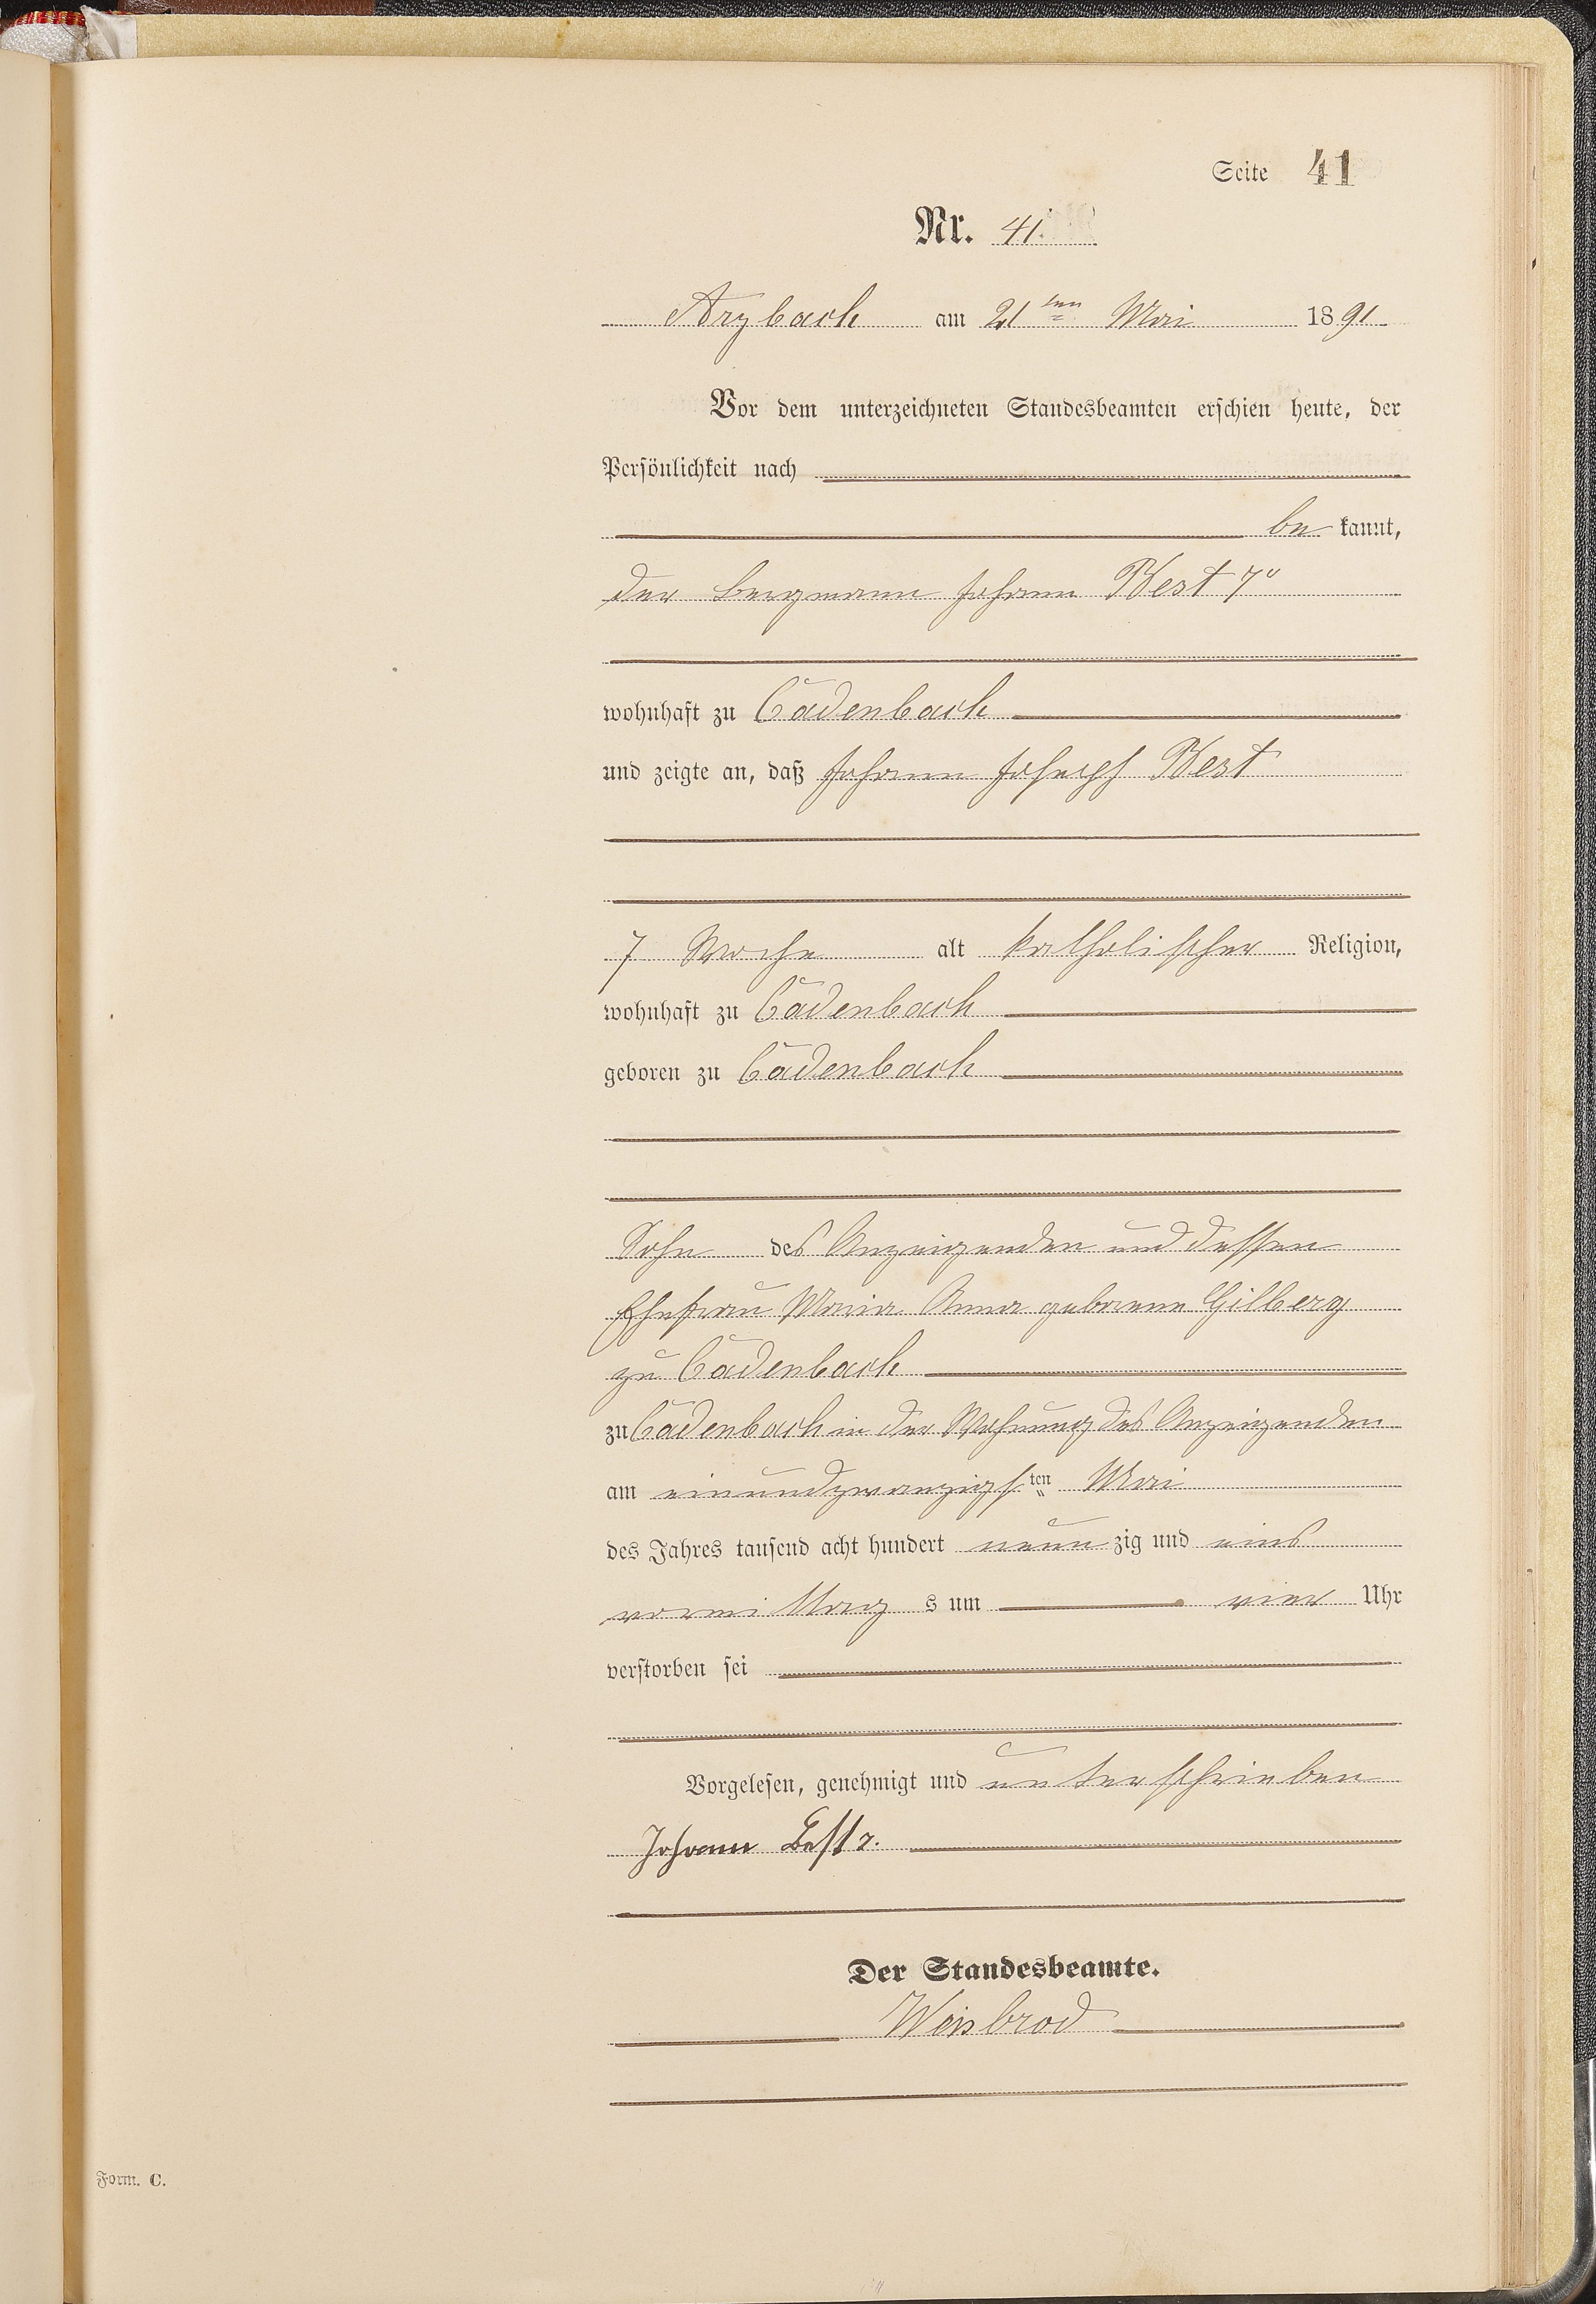 Seite 41
Nr. 41.
Arzbach am 21ten Mai 1891
Vor dem unterzeichneten Standesbeamten erschien heute, der
Persönlichkeit nach
be kannt,
der Bergmann Johann Best 7r
wohnhaft zu Cadenbach
und zeigte an, daß Johann Joseph Best
7 Woche alt katholischer Religion,
wohnhaft zu Cadenbach
geboren zu Cadenbach
Sohn des Anzeigenden und dessen
Ehefrau Maria Anna geborene Gilberg
zu Cadenbach
zu Cadenbach in der Wohnung des Anzeigenden
am einundzwanzigsten Mai
des Jahres tausend acht hundert neunzig und eins
vormittags um vier Uhr
verstorben sei
Vorgelesen, genehmigt und unterschrieben
Johann Best 7.
Der Standesbeamte.
Weisbrod
Form. C.